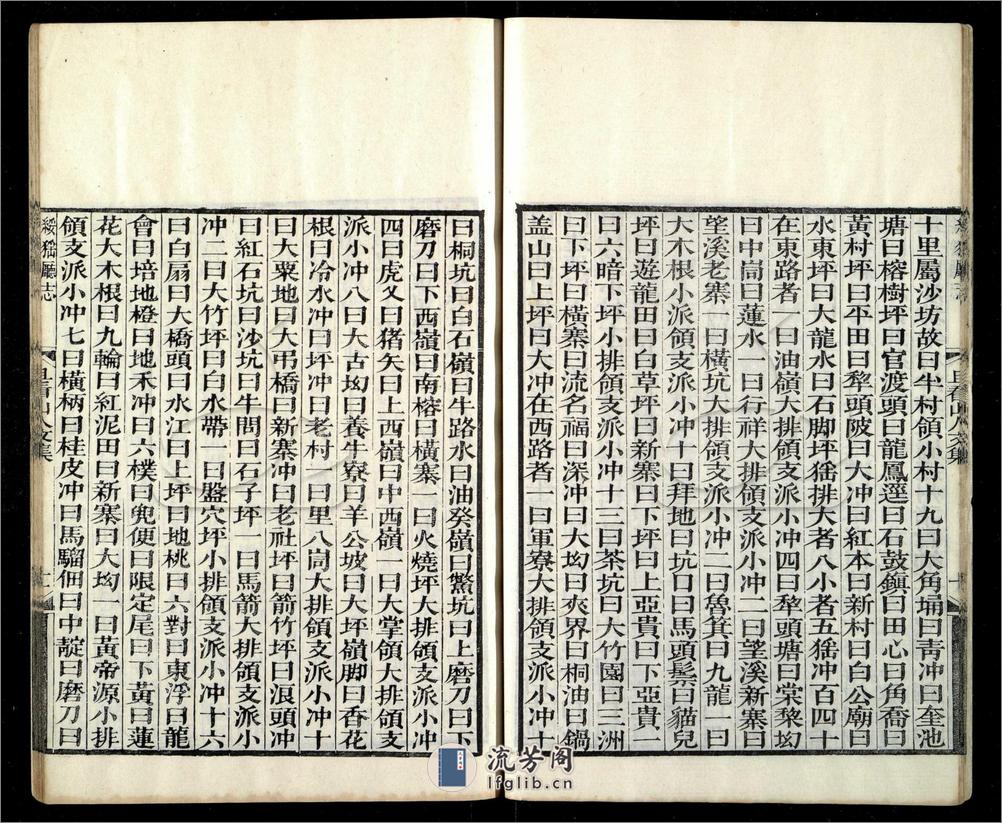 十里屬沙坊故曰半村領小村十九曰大角埇曰靑冲曰奎池
塘曰榕樹坪曰官渡頭曰龍鳳逕曰石鼓鎮曰田心曰角喬曰
黃村坪曰平田曰犂頭陂曰大冲曰紅本曰新村曰白公廟曰
水東坪曰大龍水曰石脚坪猺排大者八小者五猺冲百四十
在東路者一曰油嶺大排領支派小冲四曰犂頭塘曰棠黎坳
曰中崗曰蓮水一曰行祥大排領支派小冲二曰望溪新寨曰
望溪老寨一曰橫坑大排領支派小冲二曰魯箕曰九龍一曰
大木根小派領支派小冲十曰拜地曰坑口曰馬頭鬃曰貓兒
坪曰遊龍田曰白草坪曰新寨曰下坪曰上亞貴曰下亞貴一
曰六暗下坪小排領支派小冲十三曰茶坑曰大竹園曰三洲
曰下坪曰橫寨曰流名福曰深冲曰大坳曰夾界曰桐油曰鍋
盖山曰上坪曰大冲在西路者一曰軍寮大排領支派小冲十
曰桐坑曰白石嶺曰牛路水曰油癸嶺曰鱉坑曰上磨刀曰下
磨刀曰下西嶺曰南榕曰橫寨一曰火燒坪大排領支派小冲
四曰虎叉曰猪矢曰上西嶺曰中西嶺一曰大掌領大排領支
派小冲八曰大古坳曰養牛寮曰羊公坡曰大坪嶺脚曰香花
根曰冷水冲曰坪冲曰老村一曰里八峝大排領支派小冲十
曰大粟地曰大弔橋曰新寨冲曰老社坪曰箭竹坪曰浪頭冲
曰紅石坑曰沙坑曰牛間曰石子坪一曰馬箭大排領支派小
冲二曰大竹坪曰白水帶一曰盤穴坪小排領支派小冲十六
曰白扇曰大橋頭曰水江曰上坪曰地桃曰六對曰東浮曰龍
會曰培地橙曰地禾冲曰六樸曰兜便曰限定尾曰下黃曰蓮
花大木根曰九輪曰紅泥田曰新寨曰大坳一曰黃帝源小排
領支派小冲七曰橫柄曰桂皮冲曰馬騮佃曰中靛曰磨刀曰
綏猺廳志
流芳阁
lfglib.cn